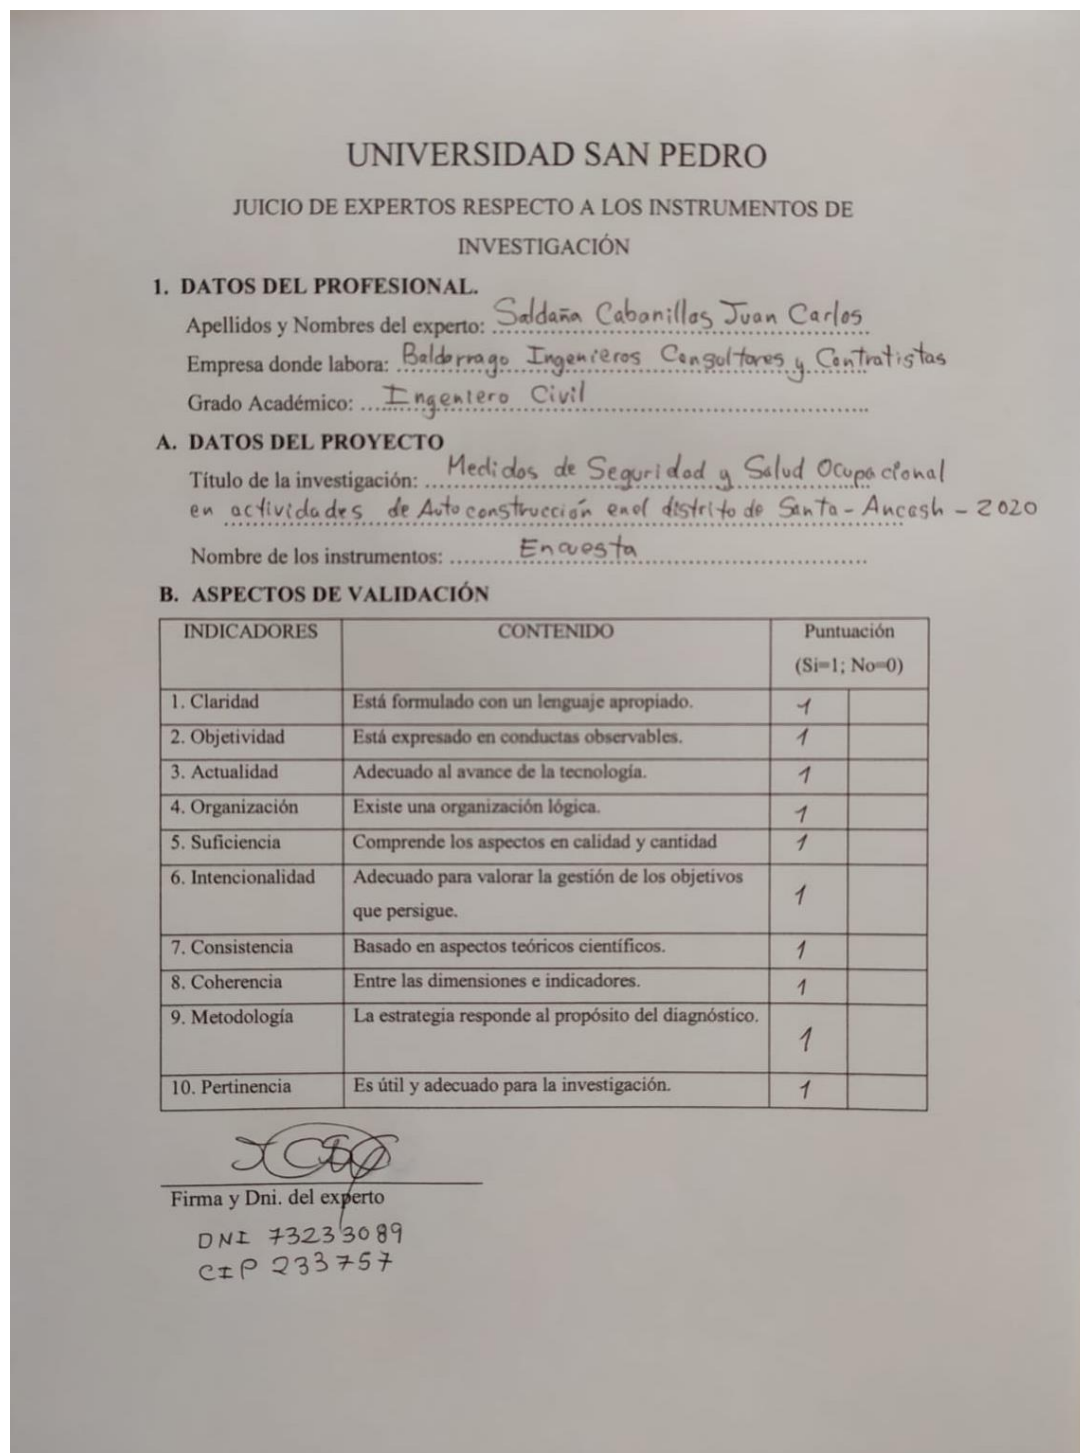 UNIVERSIDAD SAN PEDRO
JUICIO DE EXPERTOS RESPECTO A LOS INSTRUMENTOS DE
INVESTIGACIÓN
1. DATOS DEL PROFESIONAL.
Apellidos y Nombres del experto: Saldaña Cabanillas Juan Carlos
Empresa donde labora: Baldarrago Ingenieros Consultores y Contratistas
Grado Académico: Ingeniero Civil
A. DATOS DEL PROYECTO
Título de la investigación: Medidas de Seguridad y Salud Ocupacional
en actividades de Autoconstrucción en el distrito de Santa - Ancash - 2020
Nombre de los instrumentos: Encuesta
B. ASPECTOS DE VALIDACIÓN
INDICADORES CONTENIDO Puntuación
(Si=1; No=0)
1. Claridad Está formulado con un lenguaje apropiado. 1
2. Objetividad Está expresado en conductas observables. 1
3. Actualidad Adecuado al avance de la tecnología. 1
4. Organización Existe una organización lógica. 1
5. Suficiencia Comprende los aspectos en calidad y cantidad 1
6. Intencionalidad Adecuado para valorar la gestión de los objetivos
que persigue. 1
7. Consistencia Basado en aspectos teóricos científicos. 1
8. Coherencia Entre las dimensiones e indicadores. 1
9. Metodología La estrategia responde al propósito del diagnóstico. 1
10. Pertinencia Es útil y adecuado para la investigación. 1
Firma y Dni. del experto
DNI 73233089
CIP 233757